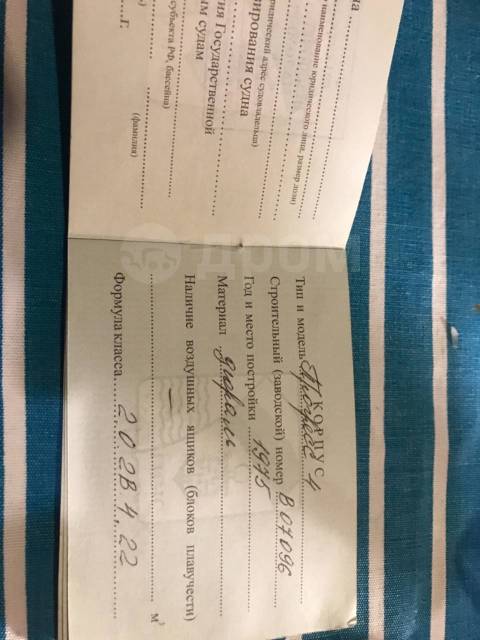 на
наименование юридического лица, размер доли)
юридический адрес судовладельца)
ирования судна
ия Государственной
ым судам
субъекта РФ, бассейна)
(фамилия)
г.
ДРОМ
КОРПУС
Тип и модель "Прогресс 4
Строительный (заводской) номер В 07096
Год и место постройки 1975
Материал дюраль
Наличие воздушных ящиков (блоков плавучести)
— м³
Формула класса